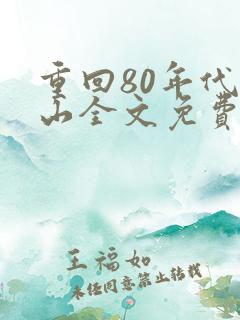 重回80年代
山全文免费
王福如
未经同意禁止转载